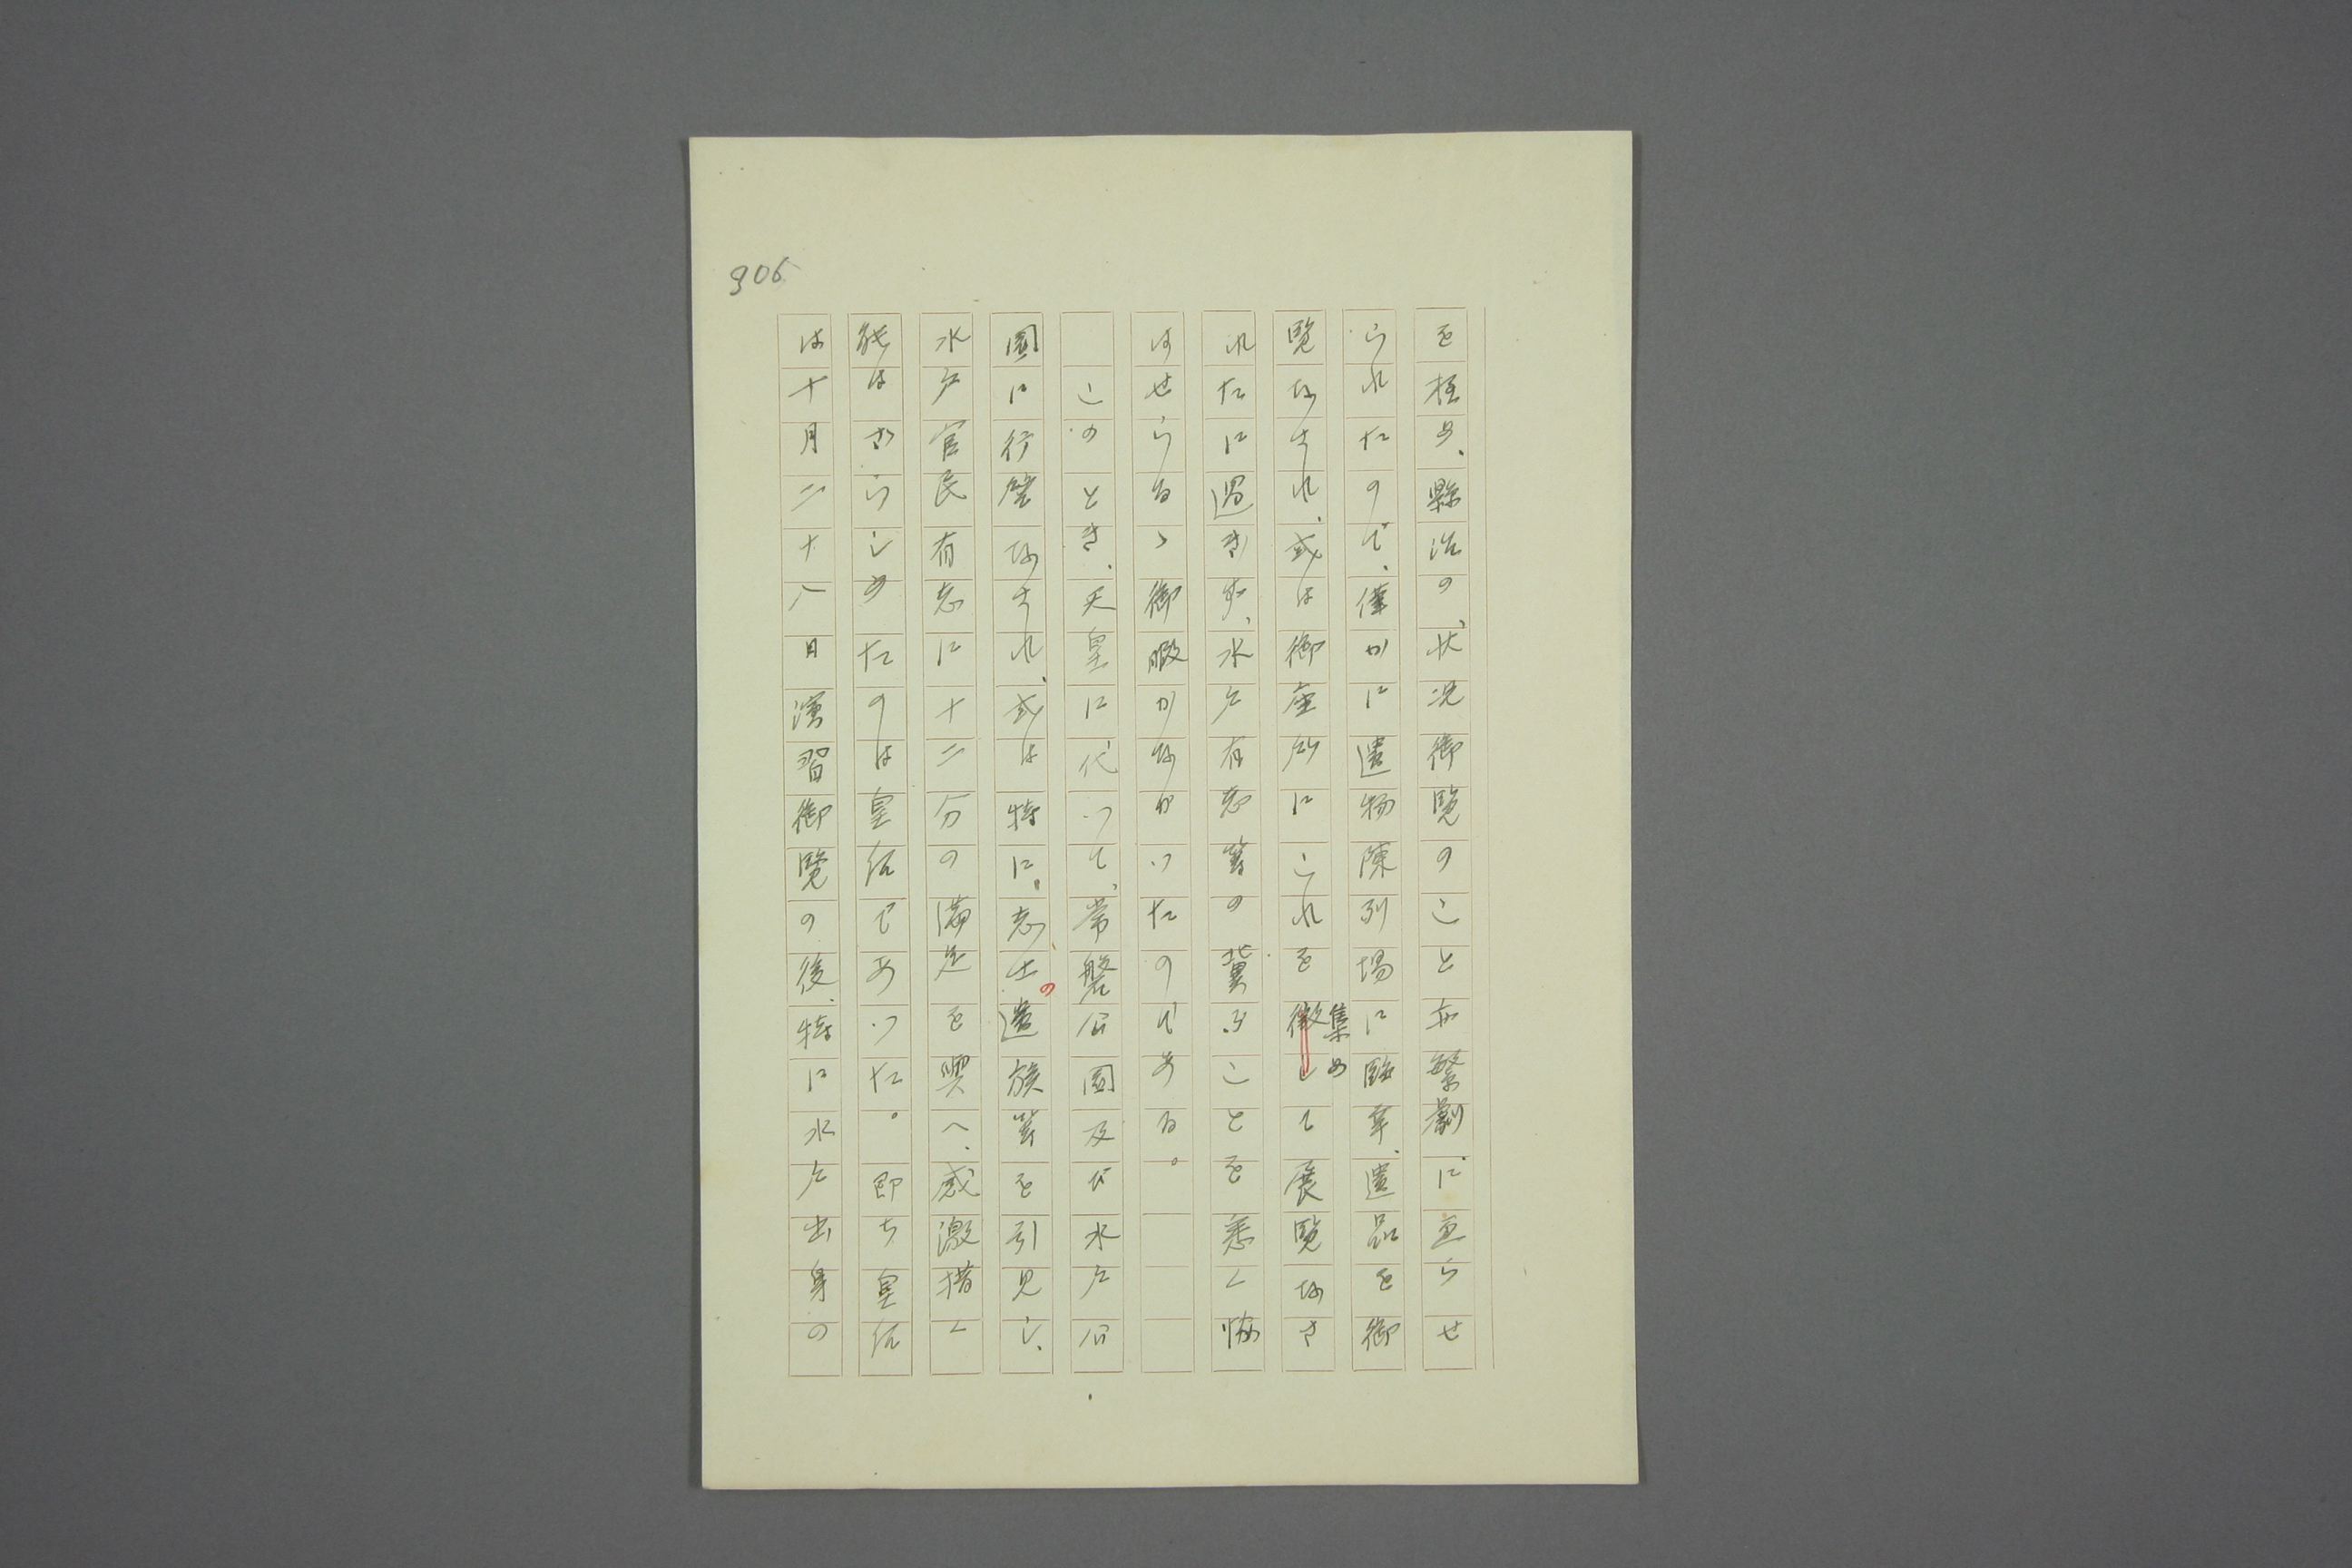 306
を極め、縣治の状況御覽のこと亦繁劇に亘らせ
られたので、僅かに遺物陳列場に臨幸、遺品を御
覽なされ、或は御座所にこれを集めて展覽なさ
れたに過ぎず、水戸有志等の冀ふことを悉く協
はせらるゝ御暇がなかつたのである。
このとき、天皇に代つて、常磐公園及び水戸公
園に行啓なされ、或は特に、志士の遺族等を引見し、
水戸官民有志に十二分の滿足を與へ、感激措く
能はざらしめたのは皇后であつた。即ち皇后
は十月二十八日演習御覽の後、特に水戸出身の